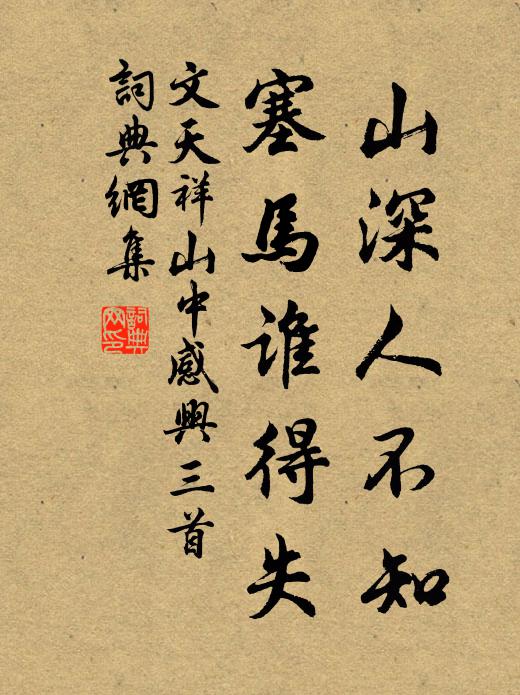 山深人不知
塞馬誰得失
文天祥山中感興三首
詞典網集
詞典網印